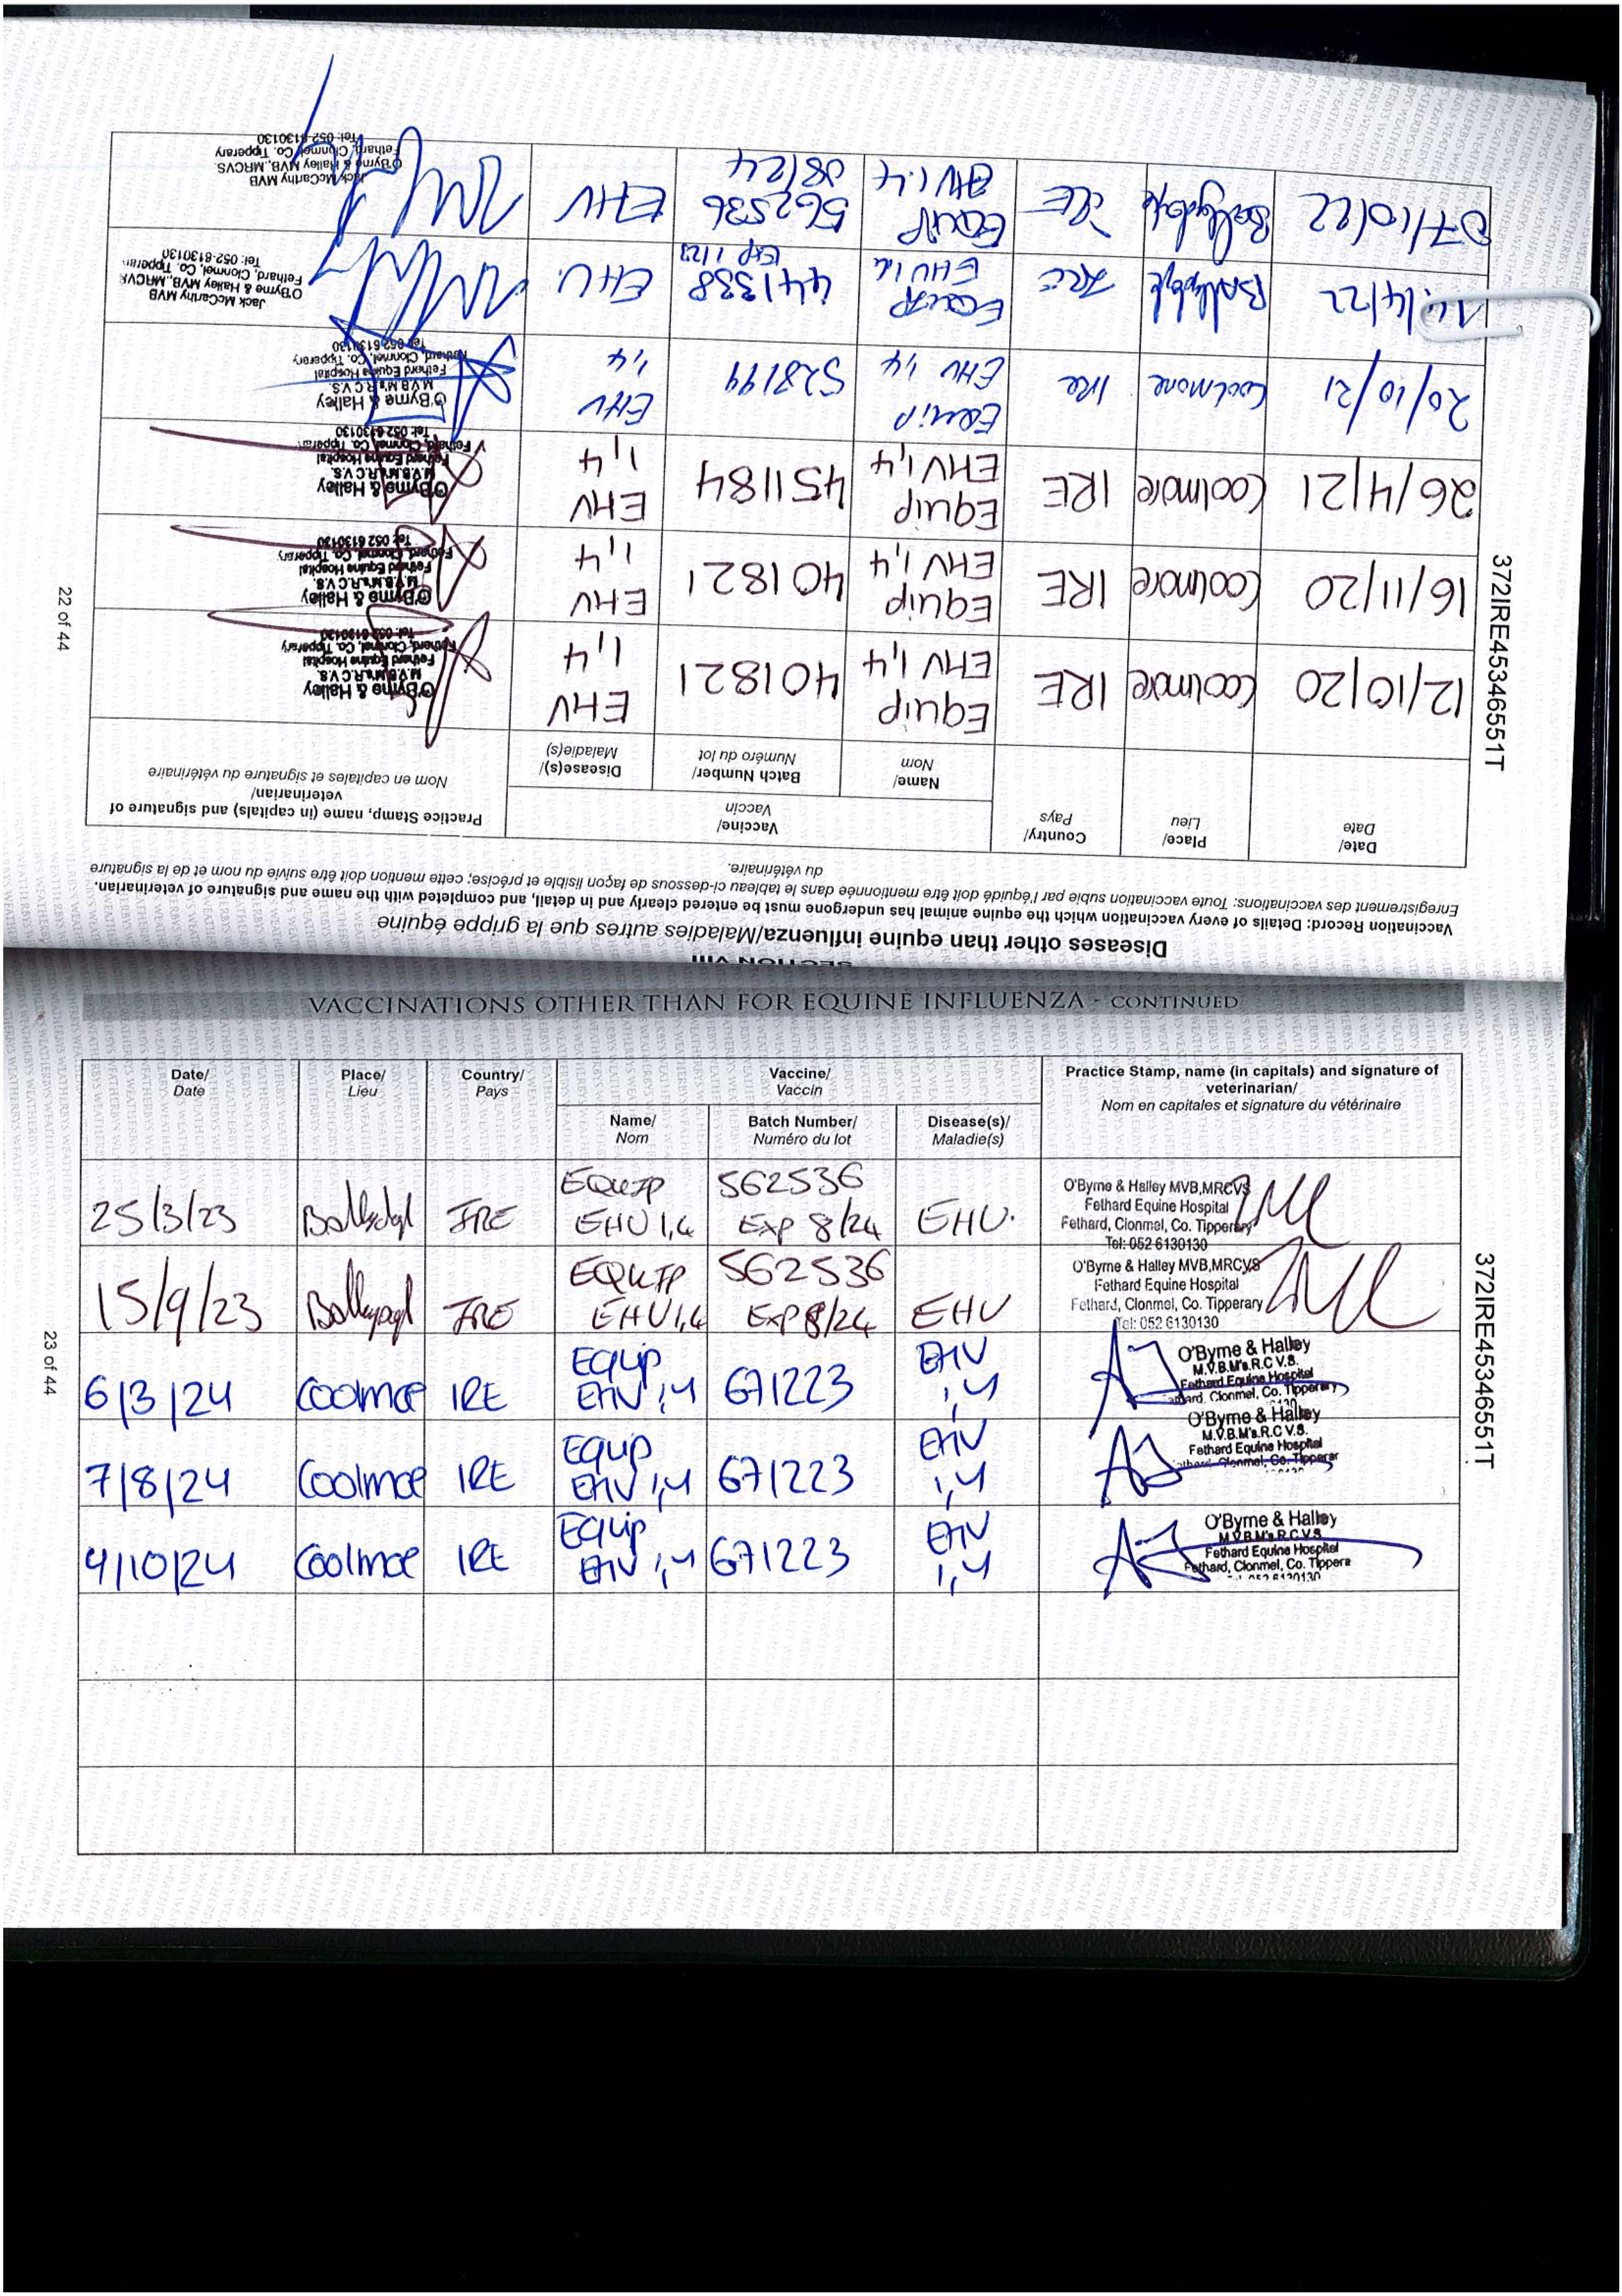 SECTION VIII
Diseases other than equine influenza/Maladies autres que la grippe équine
Vaccination Record: Details of every vaccination which the equine animal has undergone must be entered clearly and in detail, and completed with the name and signature of veterinarian.
Enregistrement des vaccinations: Toute vaccination subie par l'équidé doit être mentionnée dans le tableau ci-dessous de façon lisible et précise; cette mention doit être suivie du nom et de la signature
du vétérinaire.
Date/ Place/ Country/ Vaccine/ Practice Stamp, name (in capitals) and signature of
Date Lieu Pays Vaccin veterinarian/
Name/ Batch Number/ Disease(s)/ Nom en capitales et signature du vétérinaire
Nom Numéro du lot Maladie(s)/
12/10/20 Coolmore IRE Equip 401821 EHV O'Byrne & Halley
EHV 1,4 1,4 M.V.B.M's.R.C.V.S.
Fethard Equine Hospital
Fethard, Clonmel, Co. Tipperary
Tel: 052 6130130
16/11/20 Coolmore IRE Equip 401821 EHV O'Byrne & Halley
EHV 1,4 1,4 M.V.B.M's.R.C.V.S.
Fethard Equine Hospital
Fethard, Clonmel, Co. Tipperary
Tel: 052 6130130
26/4/21 Coolmore IRE Equip 451184 EHV O'Byrne & Halley
EHV 1,4 1,4 M.V.B.M's.R.C.V.S.
Fethard Equine Hospital
Fethard, Clonmel, Co. Tipperary
Tel: 052 6130130
20/10/21 Coolmore IRE Equip 528199 EHV O'Byrne & Halley
EHV 1,4 1,4 M.V.B.M's.R.C.V.S.
Fethard Equine Hospital
Fethard, Clonmel, Co. Tipperary
Tel: 052 6130130
14/4/22 IRE EQUIP 441338 EHV. Jack McCarthy MVB
EHV 1,4 Exp 1/23 O'Byrne & Halley MVB, MRCVS
Fethard, Clonmel, Co. Tipperary
Tel: 052-6130130
07/10/22 IRE EQUIP 562536 EHV Jack McCarthy MVB
EHV 1.4 08/24 O'Byrne & Halley MVB, MRCVS
Fethard, Clonmel, Co. Tipperary
Tel: 052-6130130
372IRE45346551T
22 of 44
VACCINATIONS OTHER THAN FOR EQUINE INFLUENZA - CONTINUED
Date/ Place/ Country/ Vaccine/ Practice Stamp, name (in capitals) and signature of
Date Lieu Pays Vaccin veterinarian/
Name/ Batch Number/ Disease(s)/ Nom en capitales et signature du vétérinaire
Nom Numéro du lot Maladie(s)
25/3/23 IRE EQUIP 562536 EHV. O'Byrne & Halley MVB,MRCVS
EHV 1,4 Exp 8/24 Fethard Equine Hospital
Fethard, Clonmel, Co. Tipperary
Tel: 052 6130130
15/9/23 IRE EQUIP 562536 EHV O'Byrne & Halley MVB,MRCVS
EHV1,4 Exp 8/24 Fethard Equine Hospital
Fethard, Clonmel, Co. Tipperary
Tel: 052 6130130
6/3/24 Coolmore IRE Equip 671223 EHV O'Byrne & Halley
EHV 1,4 1,4 M.V.B.M's.R.C V.S.
Fethard Equine Hospital
Fethard, Clonmel, Co. Tipperary
7/8/24 Coolmore IRE Equip 671223 EHV O'Byrne & Halley
EHV 1,4 1,4 M.V.B.M's.R.C V.S.
Fethard Equine Hospital
Clonmel, Co. Tipperar
4/10/24 Coolmore IRE Equip 671223 EHV O'Byrne & Halley
EHV 1,4 1,4 M.V.B.M's R.C.V.S.
Fethard Equine Hospital
Fethard, Clonmel, Co. Tippera
052 6130130
372IRE45346551T
23 of 44